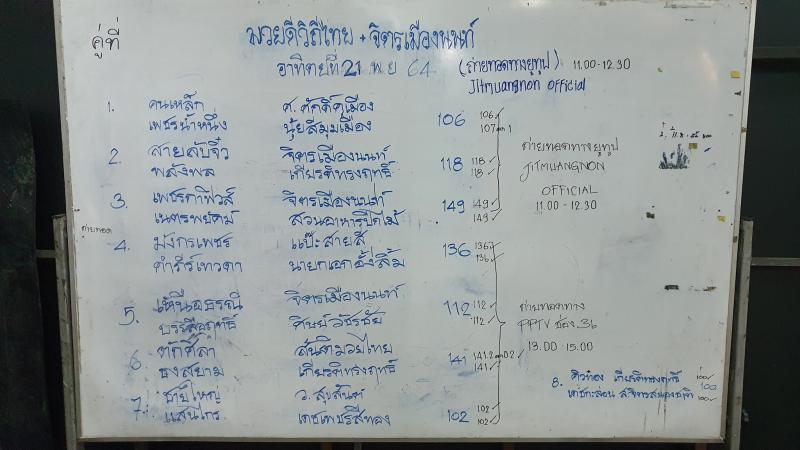 คู่ที่
มวยดีวิถีไทย + จิตรเมืองนนท์
อาทิตย์ที่ 21 พ.ย 64
(ถ่ายทอดทางยูทูป) 11.00-12.30
Jitmuangnon official
1. คนเหล็ก ศ. ศักดิ์คูเมือง
เพชรน้ำหนึ่ง นุ้ยสี่มุมเมือง
106 106 107
2. สายลับจิ๋ว จิตรเมืองนนท์
พลังพล เกียรติทรงฤทธิ์
118 118 118
3. เพชรกาฟิวส์ จิตรเมืองนนท์
เนตรพยัคฆ์ สวนอาหารปีกไม้
149 149 149
ถ่ายทอด
4. มังกรเพชร แป๊ะสายสี่
คำภีร์เทวดา นายกเอกอั้งลิ้ม
136 136 136
ถ่ายทอดทางยูทูป
JITMUANGNON
OFFICIAL
11.00 - 12.30
5. เหนือธรณี จิตรเมืองนนท์
บรรลือฤทธิ์ ศิษย์วัชรชัย
112 112 112
6. ตักศิลา สันติมวยไทย
ธงสยาม เกียรติทรงฤทธิ์
141 141.2 141
7. ชายใหญ่ ว. สุขสันต์
แสนไกร เดชเพชรสีทอง
102 102 102
ถ่ายทอดทาง
PPTV ช่อง 36
13.00 - 15.00
8. คิวทอง เกียรติทรงฤทธิ์ 100
100 100